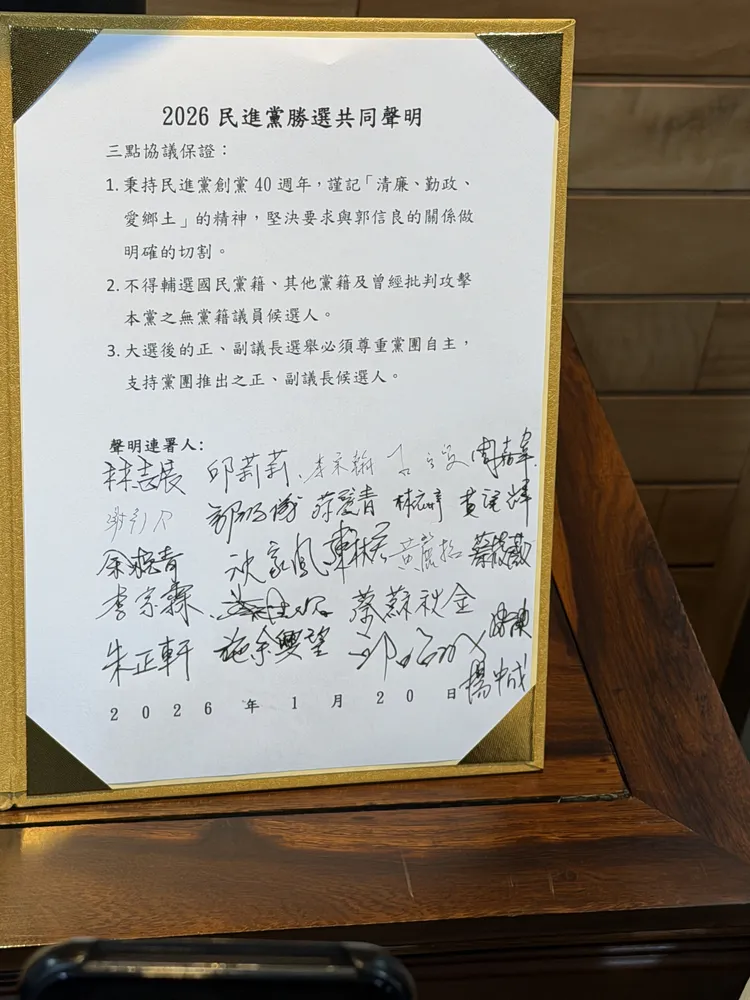 2026 民進黨勝選共同聲明
三點協議保證：
1. 秉持民進黨創黨 40 週年，謹記「清廉、勤政、
愛鄉土」的精神，堅決要求與郭信良的關係做
明確的切割。
2. 不得輔選國民黨籍、其他黨籍及曾經批判攻擊
本黨之無黨籍議員候選人。
3. 大選後的正、副議長選舉必須尊重黨團自主，
支持黨團推出之正、副議長候選人。
聲明連署人:
林志展 邱莉莉 李宗翰 周嘉韋
蔡筱薇
李宗霖 蔡蘇秋金
朱正軒 施余興望
楊中成
2026 年 1 月 20 日